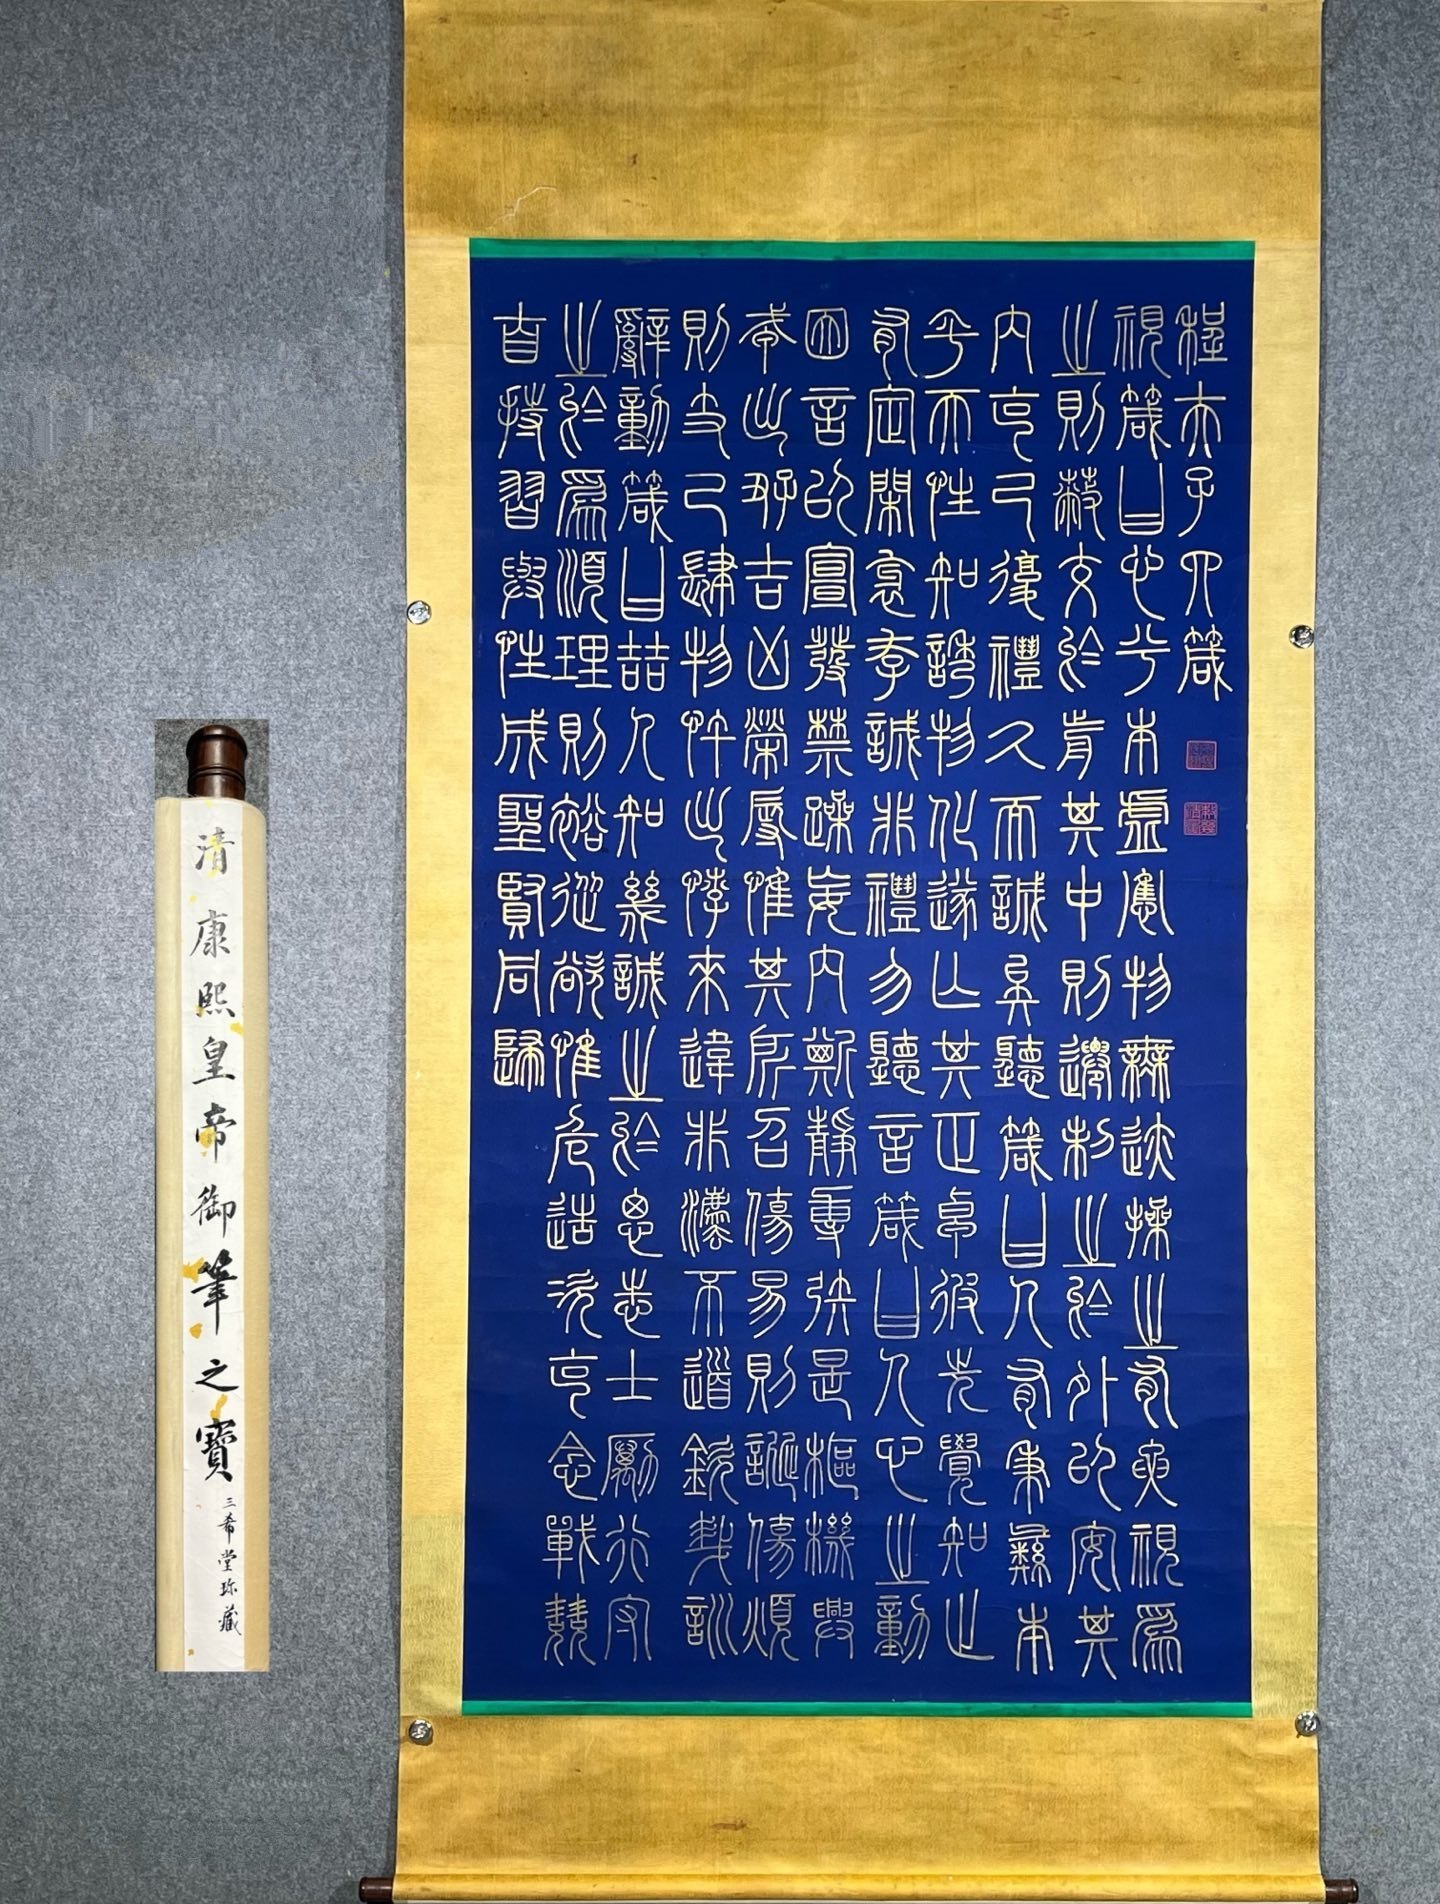 程夫子四箴
視箴曰心兮本虛應物無迹操之有要視為
之則蔽交於前其中則遷制之於外以安其
內克己復禮久而誠矣聽箴曰人有秉彝本
乎天性知誘物化遂亡其正卓彼先覺知止
有定閑邪存誠非禮勿聽言箴曰人心之動
因言以宣發禁躁妄內斯靜專矧是樞機興
戎出好吉凶榮辱惟其所召傷易則誕傷煩
則支己肆物忤出悖來違非法不道欽哉訓
辭動箴曰喆人知幾誠之於思志士勵行守
之於為順理則裕從欲惟危造次克念戰兢
自持習與性成聖賢同歸
清康熙皇帝御筆之寶
三希堂珍藏